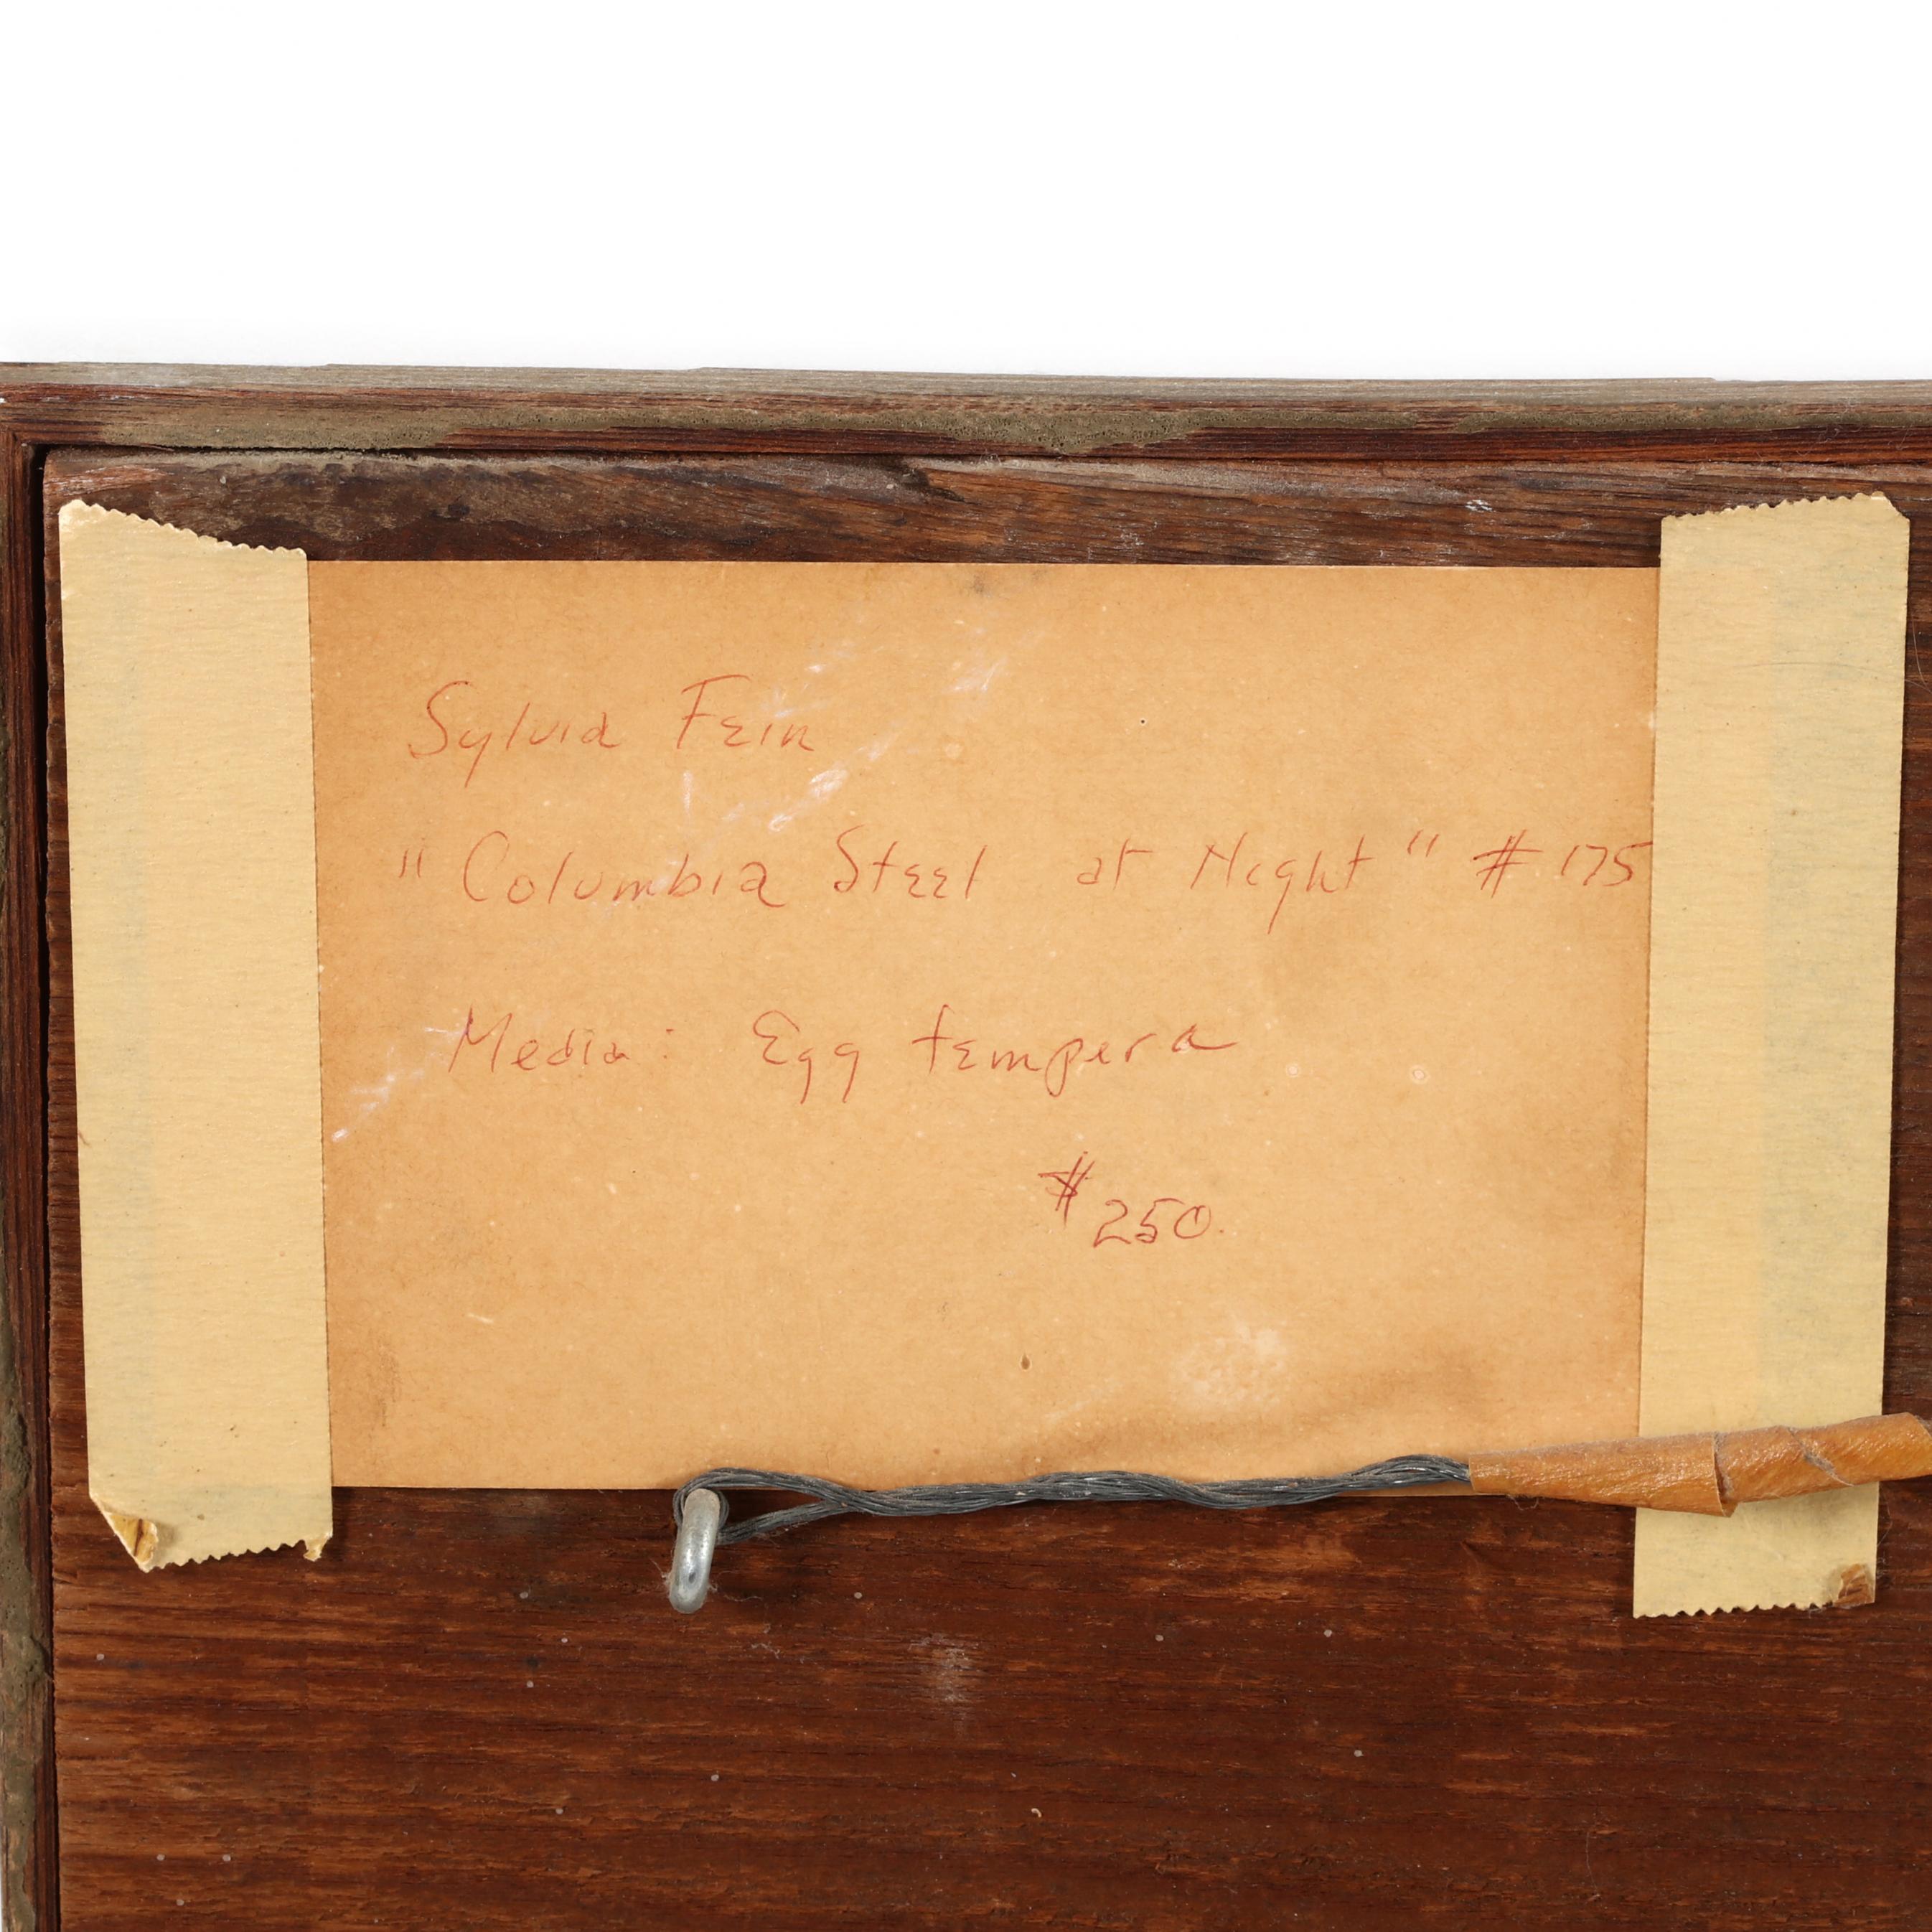 Sylvia Fein
"Columbia Steel at Night" # 175
Media: Egg tempera
$250.